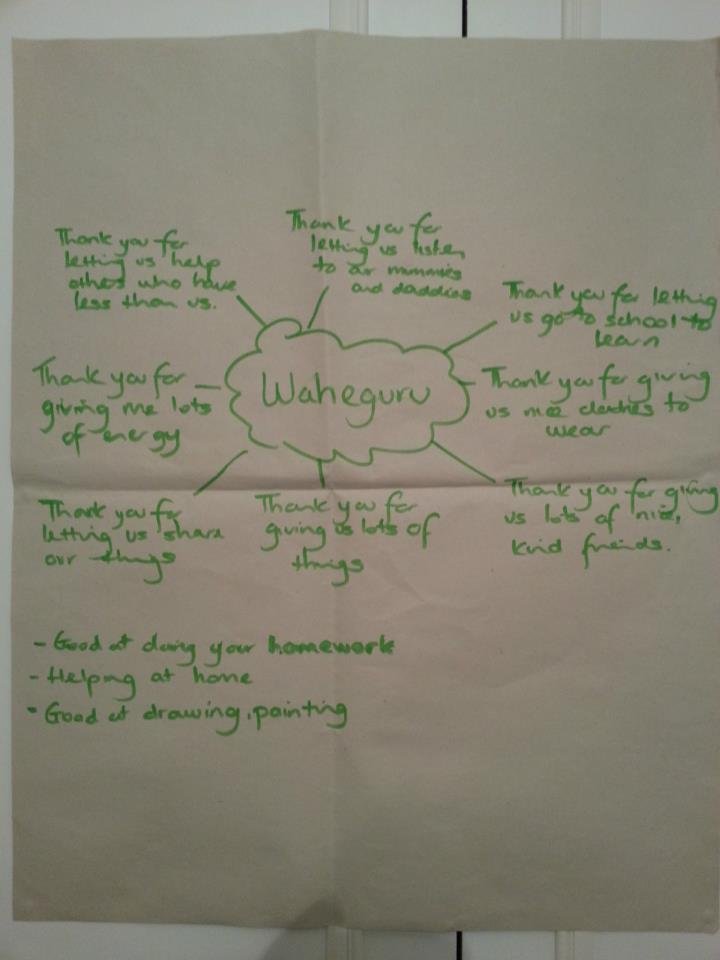 Thank you for
letting us help
others who have
less than us.
Thank you for
letting us listen
to our mummies
and daddies
Thank you for letting
us go to school to
learn
Thank you for
giving me lots
of energy
Waheguru
Thank you for giving
us nice clothes to
wear
Thank you for
letting us share
our things
Thank you for
giving us lots of
things
Thank you for giving
us lots of nice,
kind friends.
- Good at doing your homework
- Helping at home
- Good at drawing, painting